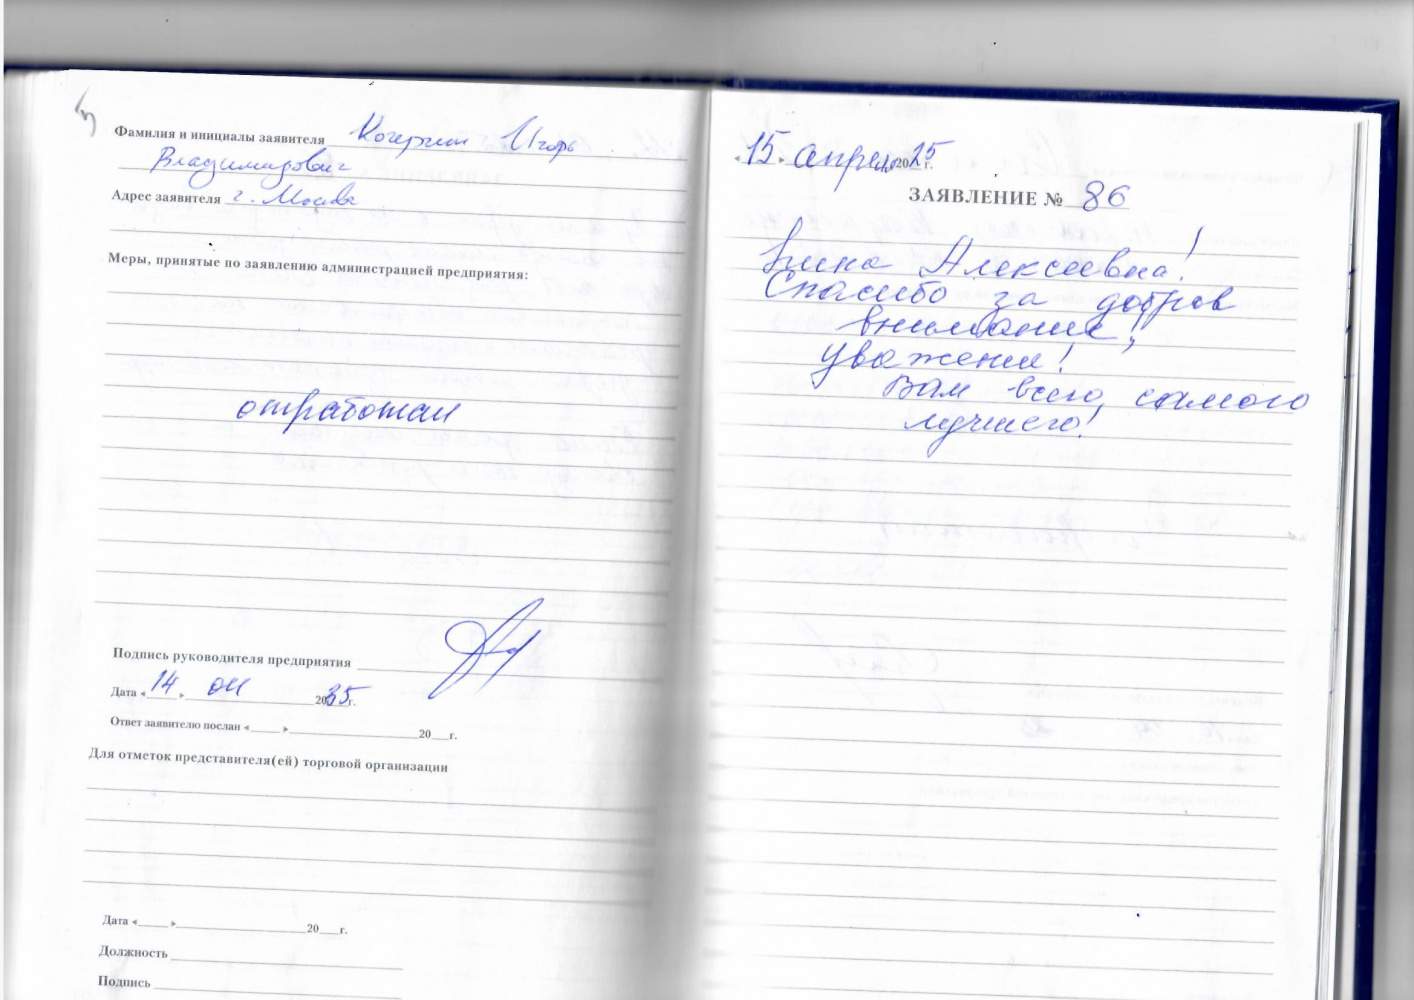 Фамилия и инициалы заявителя Кочергин Игорь
Владимирович
Адрес заявителя г. Москва
Меры, принятые по заявлению администрацией предприятия:
отработан
Подпись руководителя предприятия
Дата « 14 » 20 35 г.
Ответ заявителю послан « » 20 г.
Для отметок представителя(ей) торговой организации
Дата « » 20 г.
Должность
Подпись
« 15 » апреля 20 25 г.
ЗАЯВЛЕНИЕ № 86
Алексеевна!
Спасибо за доброе
внимание,
уважение!
Вам всего самого
лучшего!